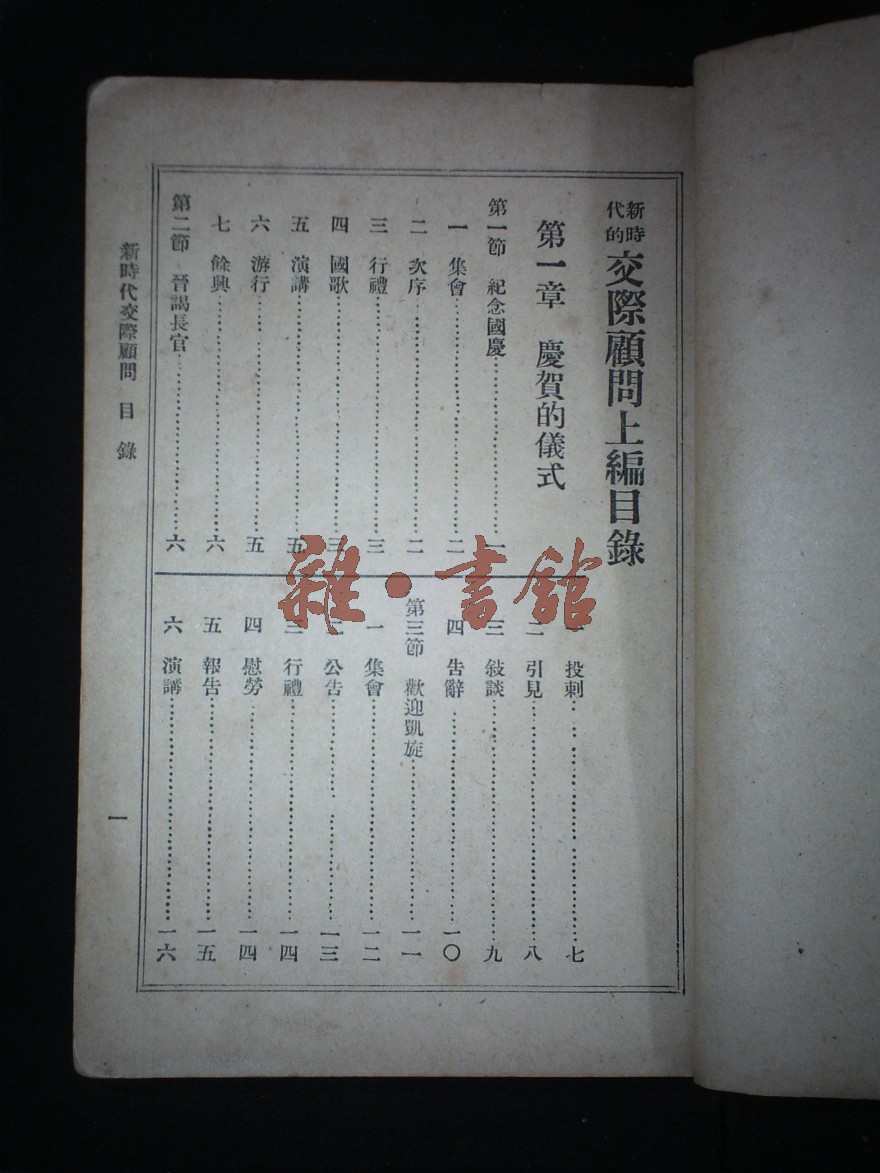 新時代的交際顧問上編目錄
第一章　慶賀的儀式
第一節　紀念國慶……一
一　集會……二
二　次序……二
三　行禮……三
四　國歌……三
五　演講……五
六　游行……五
七　餘興……六
第二節　晉謁長官……六
一　投刺……七
二　引見……八
三　敍談……九
四　告辭……一〇
第三節　歡迎凱旋……一一
一　集會……一二
二　公告……一三
三　行禮……一四
四　慰勞……一四
五　報告……一五
六　演講……一六
新時代交際顧問　目錄
一
雜·書館